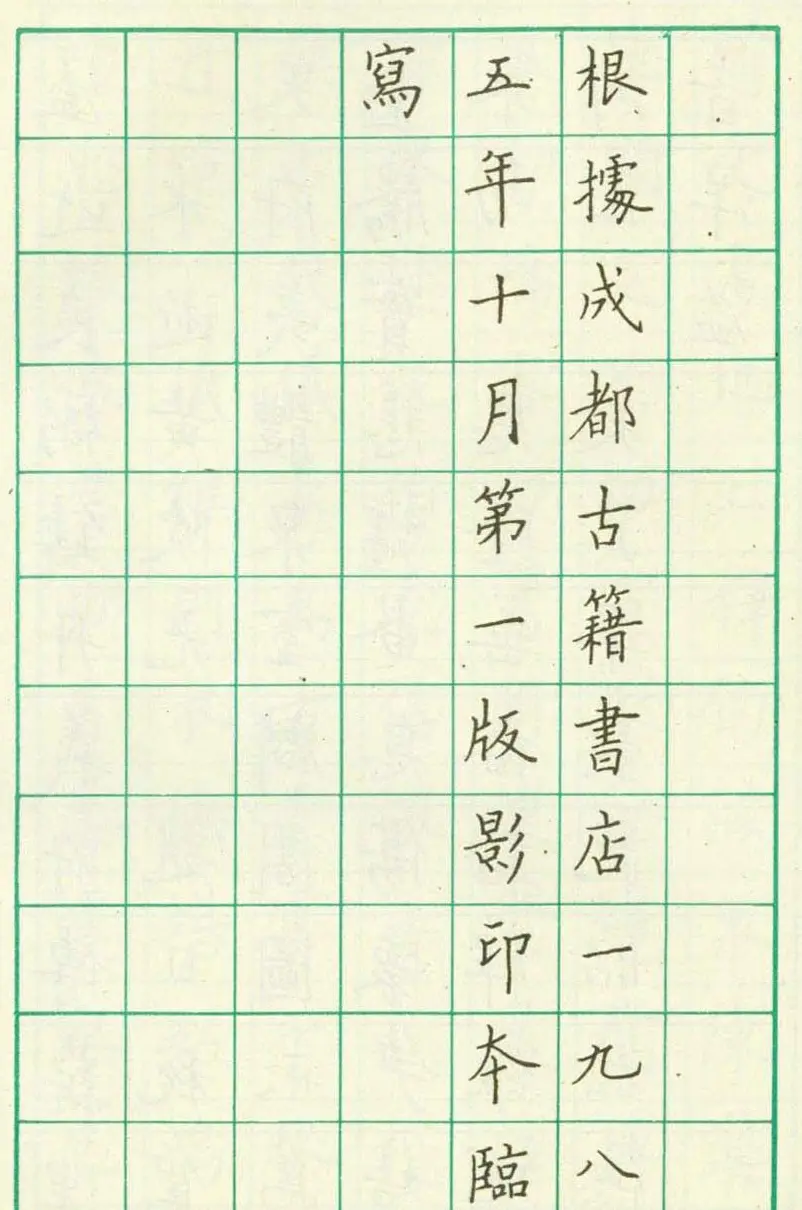 根據成都古籍書店一九八
五年十月第一版影印本臨
寫